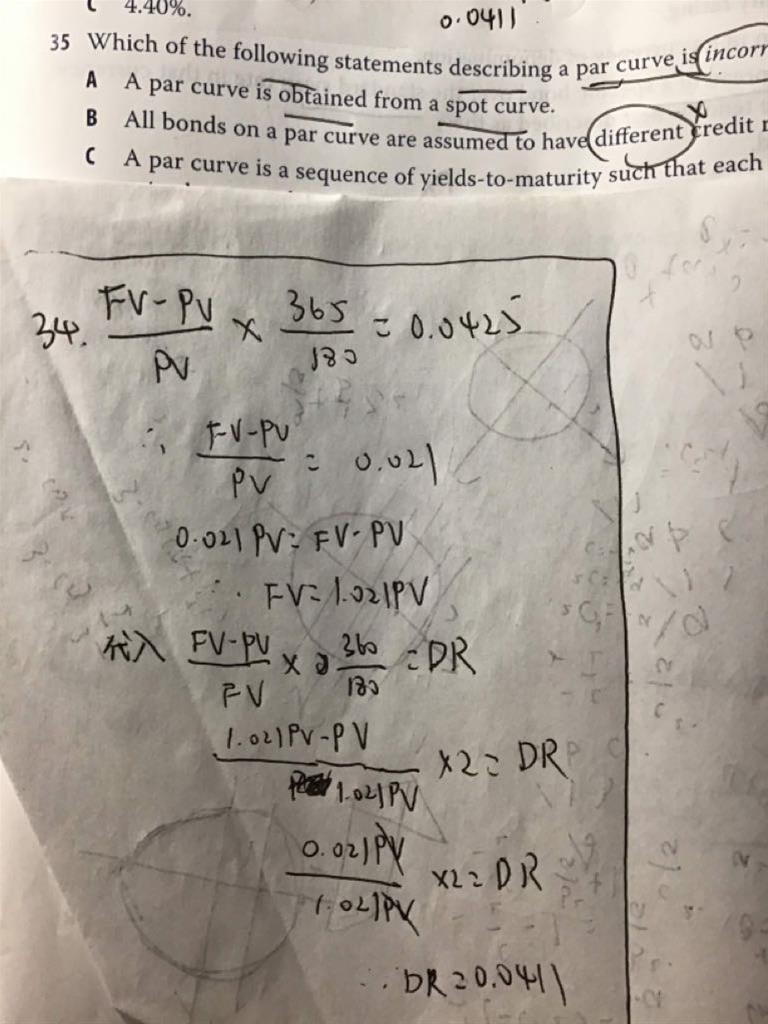 C 4.40%.
0.0411
35 Which of the following statements describing a par curve is incorr
A A par curve is obtained from a spot curve.
B All bonds on a par curve are assumed to have different credit r
C A par curve is a sequence of yields-to-maturity such that each
34. (FV-PV)/PV × 365/180 = 0.0425
∴ (FV-PV)/PV = 0.021
0.021PV = FV-PV
∴ FV=1.021PV
代入 (FV-PV)/FV × 360/180 = DR
(1.021PV-PV)/(1.021PV) ×2 = DR
(0.021PV)/(1.021PV) ×2 = DR
∴ DR=0.0411